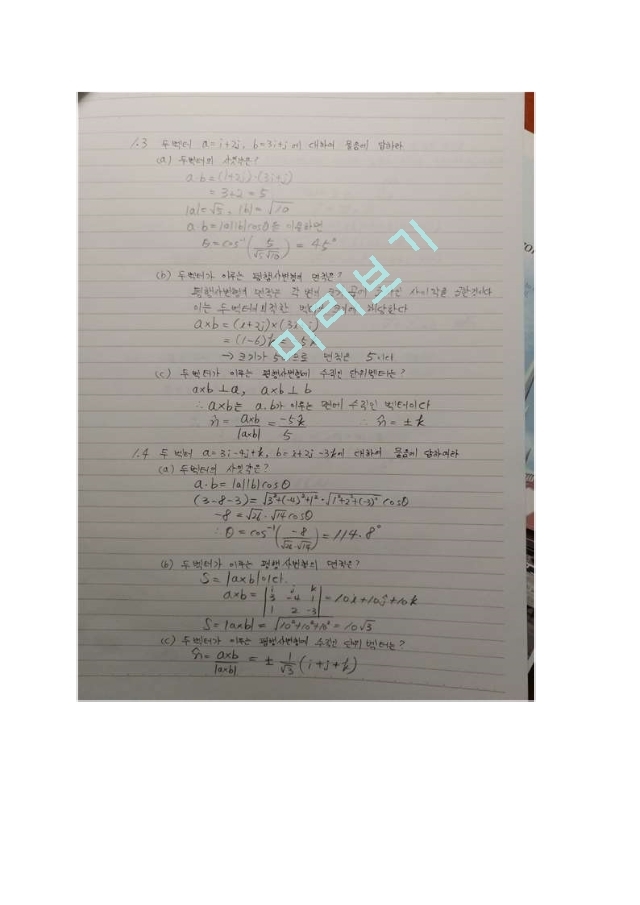 1.3 두 벡터 a=i+2j, b=3i+j에 대하여 물음에 답하라
(a) 두 벡터의 사잇각은?
a·b=(i+2j)·(3i+j)
= 3+2 = 5
|a|=√5, |b|=√10
a·b=|a||b|cosθ를 이용하면
θ=cos⁻¹(5/√5√10) = 45°
(b) 두 벡터가 이루는 평행사변형의 면적은?
평행사변형의 면적은 각 변의 사이각을 곱한것이다
이는 두 벡터를 외적한 벡터의 크기에 해당한다
a×b=(i+2j)×(3i+j)
= (1-6)k = -5k
→ 크기가 5므로 면적은 5이다
(c) 두 벡터가 이루는 평행사변형에 수직인 단위벡터는?
a×b⊥a, a×b⊥b
∴ a×b는 a, b가 이루는 면에 수직인 벡터이다
n̂ = a×b/|a×b| = -5k/5 ∴ n̂ = ±k
1.4 두 벡터 a=3i-4j+k, b=i+2j-3k에 대하여 물음에 답하여라
(a) 두 벡터의 사잇각은?
a·b=|a||b|cosθ
(3-8-3)=√3²+(-4)²+1² · √1²+2²+(-3)² cosθ
-8 = √26·√14 cosθ
∴ θ = cos⁻¹(-8/√26·√14) = 114.8°
(b) 두 벡터가 이루는 평행사변형의 면적은?
S=|a×b|이다.
a×b = |i j k; 3 -4 1; 1 2 -3| = 10i+10j+10k
S=|a×b|=√10²+10²+10² = 10√3
(c) 두 벡터가 이루는 평행사변형에 수직인 단위벡터는?
n̂ = a×b/|a×b| = ± 1/√3 (i+j+k)
미리보기